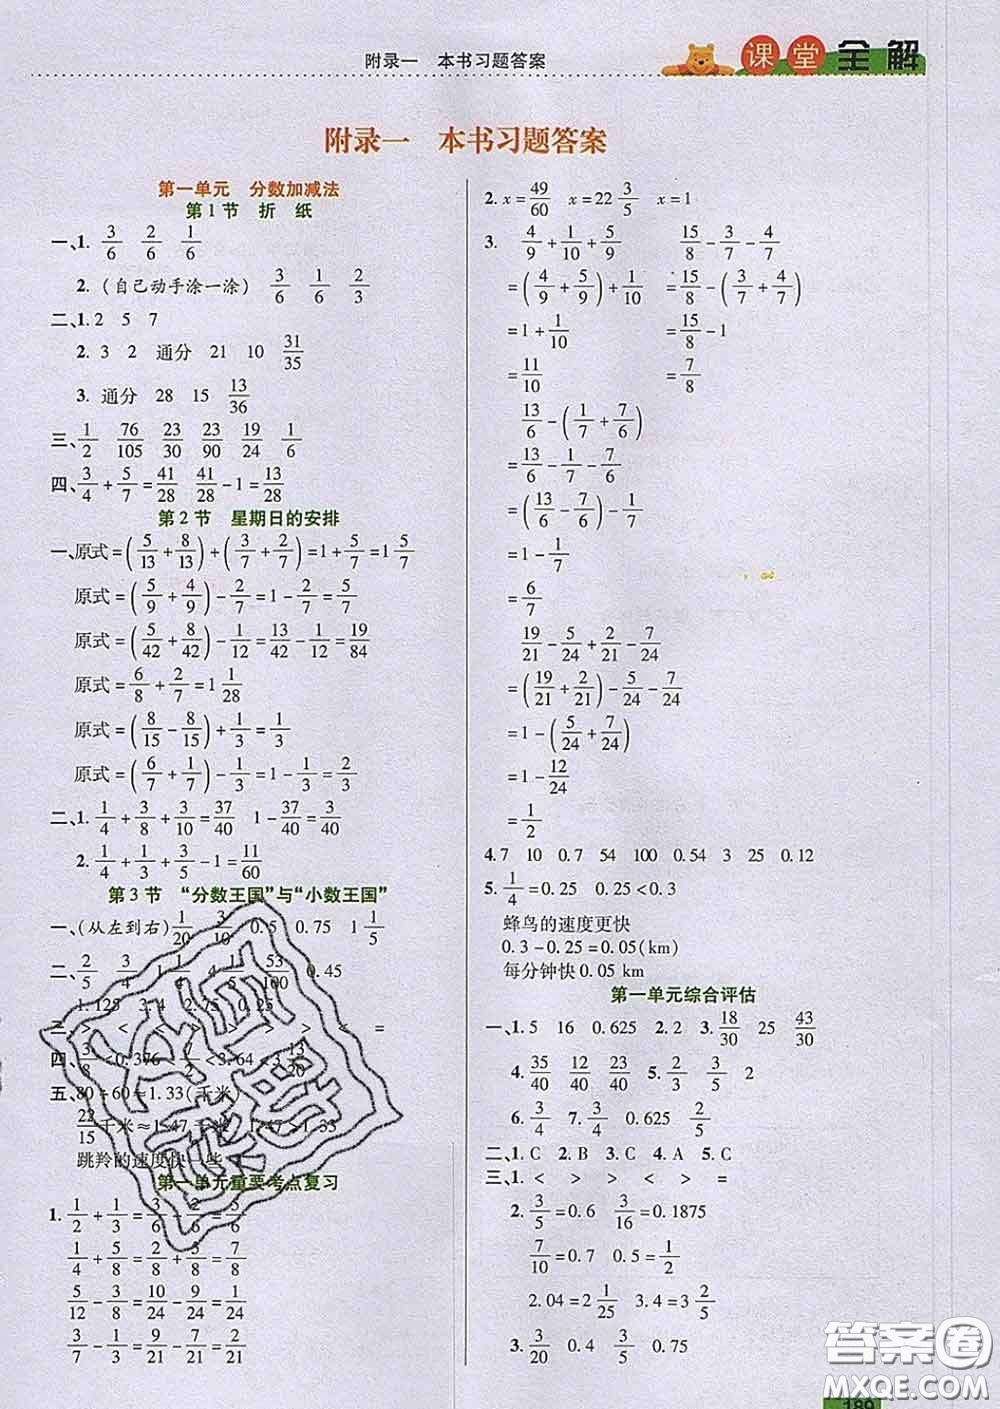 附录一 本书习题答案
课堂全解
附录一 本书习题答案
第一单元 分数加减法
第1节 折 纸
一、1. 3/6 2/6 1/6
2. (自己动手涂一涂) 3/6 1/6 2/3
二、1. 2 5 7
2. 3 2 通分 21 10 31/35
3. 通分 28 15 13/36
三、1/2 76/105 23/30 23/90 19/24 1/6
四、3/4+5/7=41/28 41/28-1=13/28
第2节 星期日的安排
一、原式=(5/13+8/13)+(3/7+2/7)=1+5/7=1 5/7
原式=(5/9+4/9)-2/7=1-2/7=5/7
原式=(5/42+8/42)-1/12=13/42-1/12=19/84
原式=6/8+2/7=1 1/28
原式=(8/15-8/15)+1/3=1/3
原式=(6/7+1/7)-1/3=1-1/3=2/3
二、1. 1/4+3/8+3/10=37/40 1-37/40=3/40
2. 1/4+1/3+3/5-1=11/60
第3节 “分数王国”与“小数王国”
一、(从左到右)1/20 3/10 0.5 0.75 1 1/5
二、2/5 3/4 1 4/5 53/100 0.45
1.125 3.4 2.75 0.25
三、> < < > > > < =
四、3/8<0.376<7/2<3.64<3 13/20
五、80÷60≈1.33(千米)
22/15千米≈1.47千米 1.47>1.33
跳羚的速度快一些
第一单元重要考点复习
1. 1/2+1/3=3/6+2/6=5/6
1/4+5/8=2/8+5/8=7/8
5/12-3/8=10/24-9/24=1/24
4/7-3/21=12/21-3/21=9/21
2. x=49/60 x=22 3/5 x=1
3. 4/9+1/10+5/9 15/8-3/7-4/7
=(4/9+5/9)+1/10 =15/8-(3/7+4/7)
=1+1/10 =15/8-1
=11/10 =7/8
13/6-(1/7+7/6)
=13/6-1/7-7/6
=(13/6-7/6)-1/7
=1-1/7
=6/7
19/21-5/24+2/21-7/24
=(19/21+2/21)-5/24-7/24
=1-(5/24+7/24)
=1-12/24
=1/2
4. 7 10 0.7 54 100 0.54 3 25 0.12
5. 1/4=0.25 0.25<0.3
蜂鸟的速度更快
0.3-0.25=0.05(km)
每分钟快0.05 km
第一单元综合评估
一、1. 5 16 0.625 2. 2 3. 18/30 25 43/30
4. 35/40 12/40 23/40 5. 2/3 3/5 2
6. 3/4 7. 3/4 0.625 5/2
二、1. C 2. B 3. C 4. A 5. C
三、1. < < > > < =
2. 3/5=0.6 3/16=0.1875
7/10=0.7 0.5=1/2
2.04=2 1/25 3.4=3 2/5
3. 3/20 3/5 0.4 0.75
答案圈
MXQE.COM
189